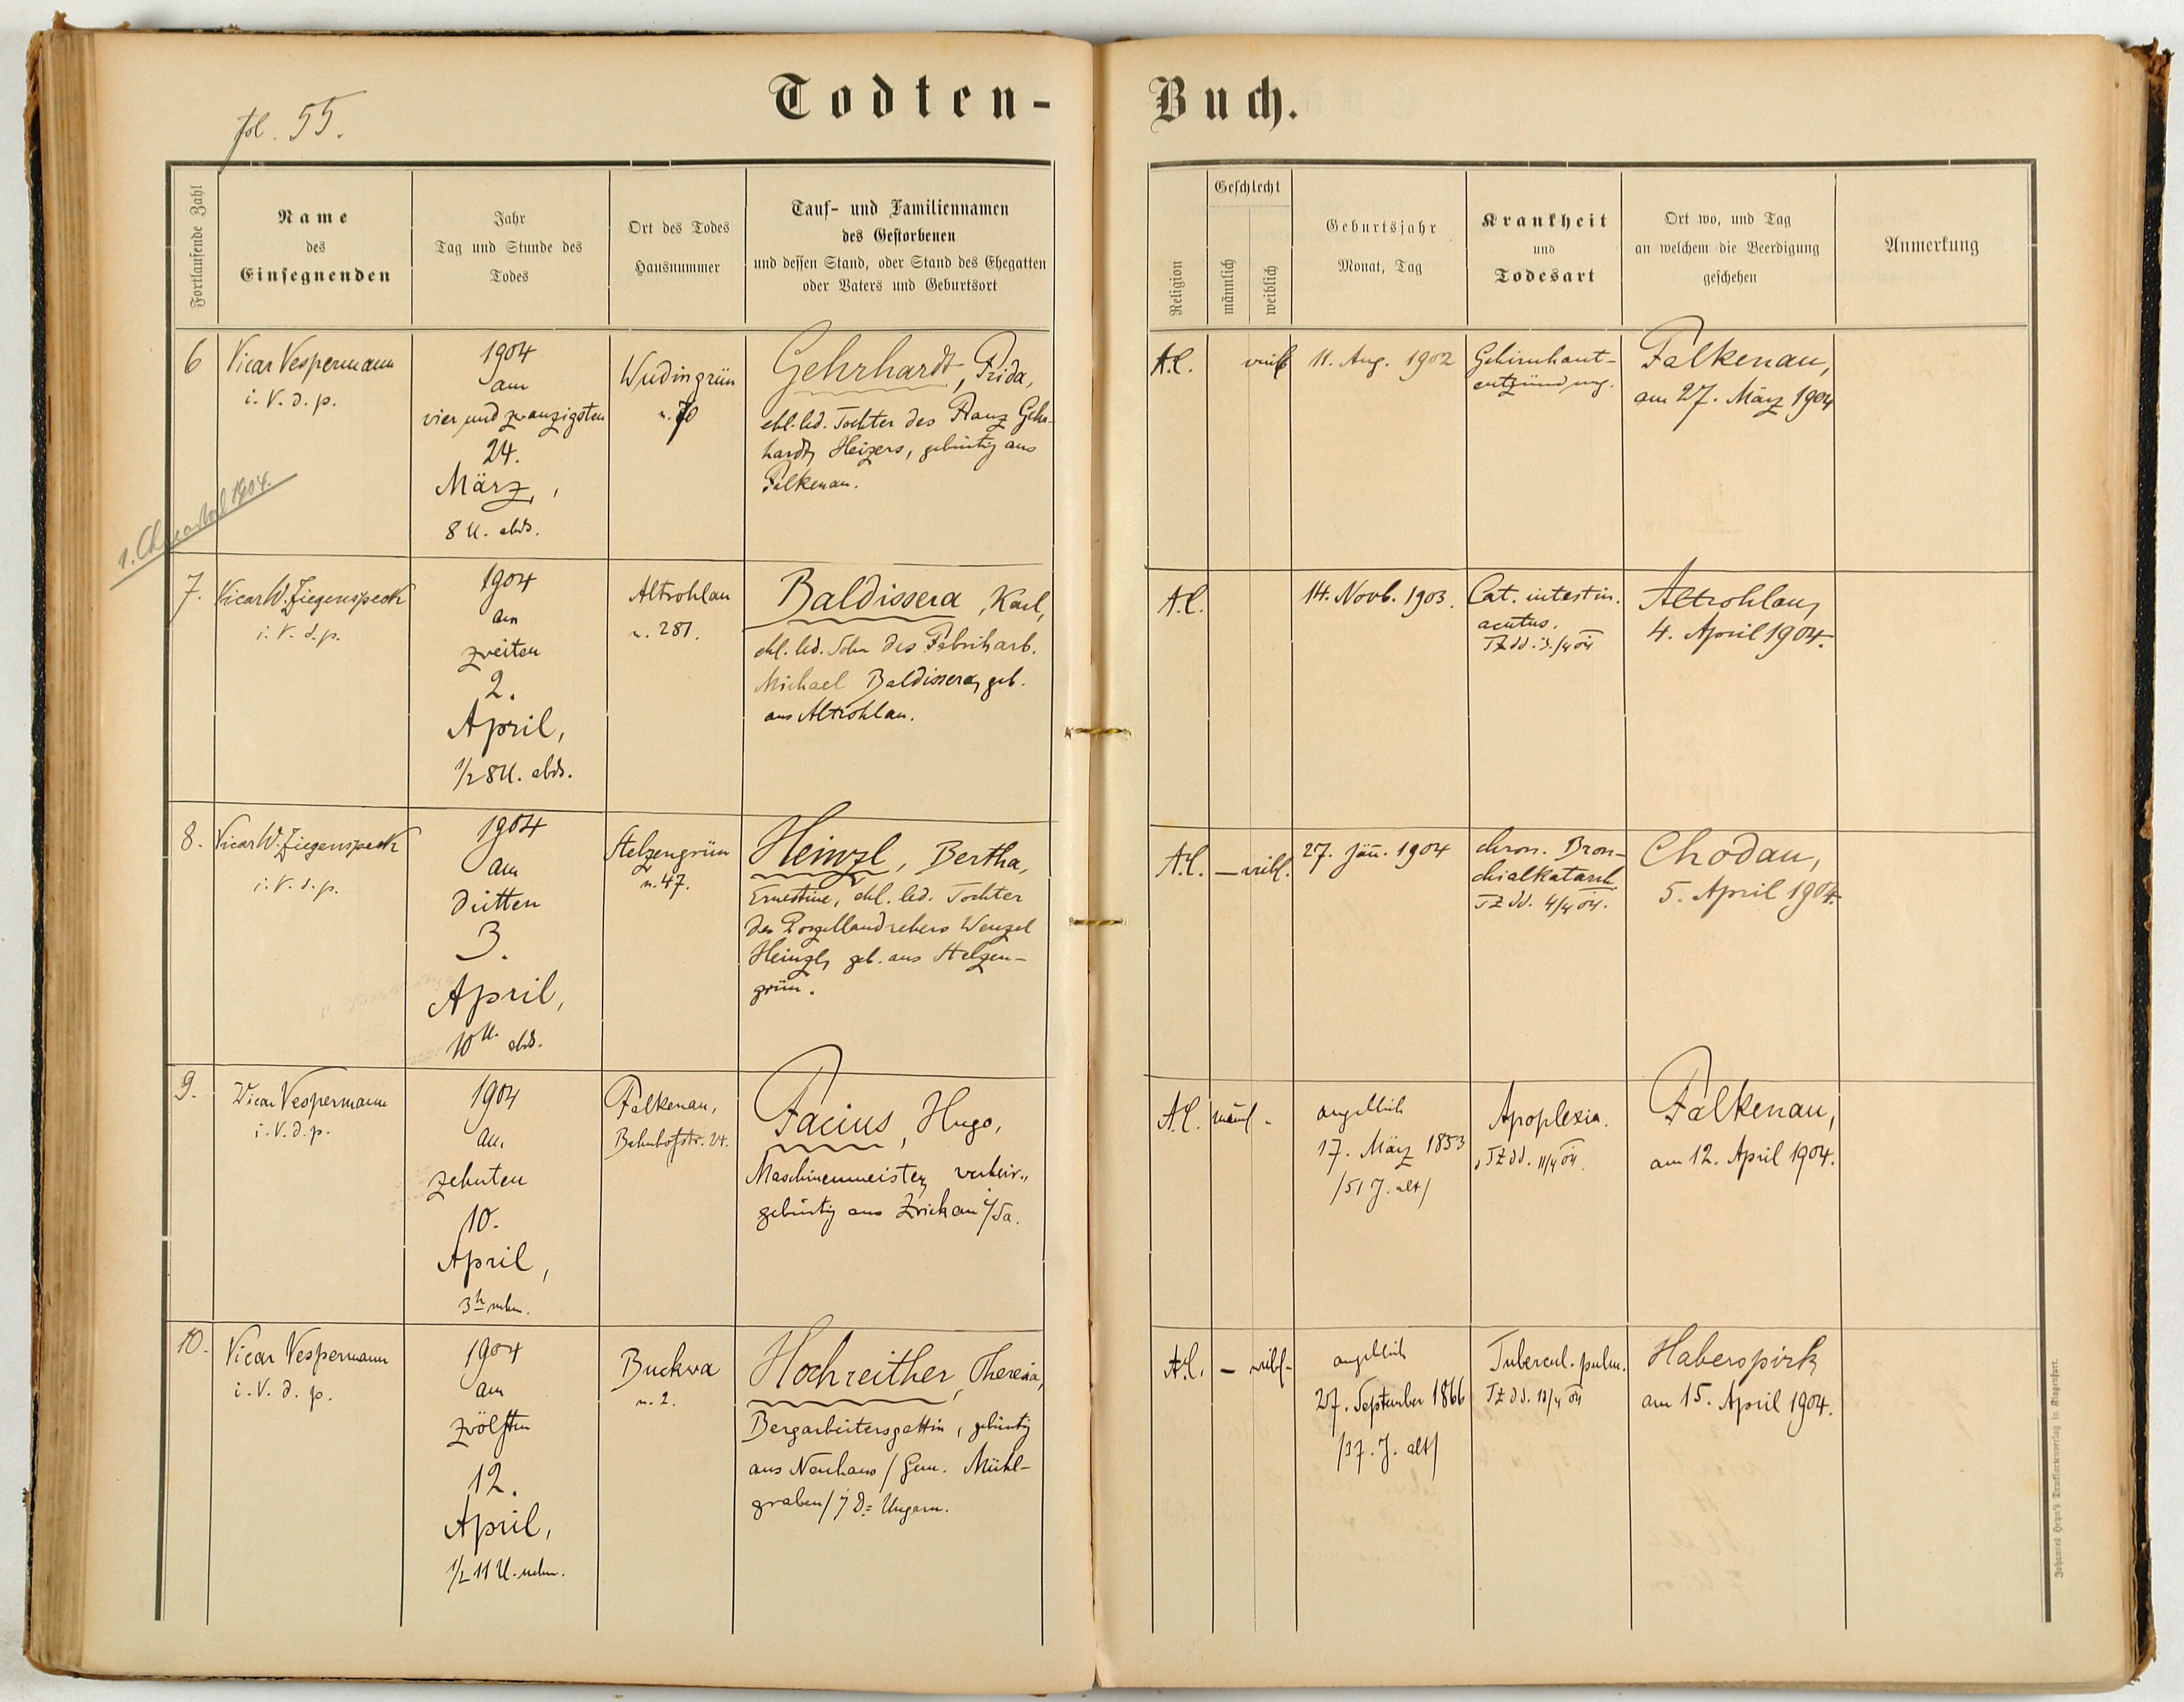 fol. 55.
Todten-Buch.
Fortlaufende Zahl
Name
des
Einsegnenden
Jahr
Tag und Stunde des
Todes
Ort des Todes
Hausnummer
Tauf- und Familiennamen
des Gestorbenen
und dessen Stand, oder Stand des Ehegatten
oder Vaters und Geburtsort
Religion
Geschlecht
männlich
weiblich
Geburtsjahr
Monat, Tag
Krankheit
und
Todesart
Ort wo, und Tag
an welchem die Beerdigung
geschehen
Anmerkung
6
Vicar Vespermann
i. V. d. p.
1904
am
vier und zwanzigsten
24.
März,
8 U. abds.
Wudingrün
n. 70
Gehrhardt, Frida,
ehl. led. Tochter des Franz Gehr-
hardt, Heizers, gebürtig aus
Falkenau.
A.C.
weibl
11. Aug. 1902
Gehirnhaut-
entzündung.
Falkenau,
am 27. März 1904
1. Quartal 1904.
7.
Vicar W. Ziegenspeck
i. V. d. p.
1904
am
zweiten
2.
April,
1/2 8 U. abds.
Altrohlau
n. 281.
Baldissera, Karl,
ehl. led. Sohn des Fabrikarb.
Michael Baldissera, geb.
aus Altrohlau.
A.C.
14. Novb. 1903.
Cat. intestin.
acutus.
TZ dd. 3./4 04
Altrohlau,
4. April 1904.
8.
Vicar W. Ziegenspeck
i. V. d. p.
1904
am
dritten
3.
April,
10 U. abds.
Stelzengrün
n. 47.
Heinzl, Bertha,
Ernestine, ehl. led. Tochter
des Porzellandrehers Wenzel
Heinzl, geb. aus Stelzen-
grün.
A.C.
— weibl.
27. Jän. 1904
chron. Bron-
chialkatarrh.
TZ dd. 4/4 04.
Chodau,
5. April 1904.
9.
Vicar Vespermann
i. V. d. p.
1904
am
zehnten
10.
April,
3 h nchm.
Falkenau,
Bahnhofstr. 24.
Facius, Hugo,
Maschinenmeister, verheir.,
gebürtig aus Zwickau i/Sa.
A.C.
männl -
angeblich
17. März 1853
/51 J. alt/
Apoplexia.
TZ dd. 11/4 04.
Falkenau,
am 12. April 1904.
10.
Vicar Vespermann
i. V. d. p.
1904
am
zwölften
12.
April,
1/2 11 U. nchm.
Buckwa
n. 2.
Hochreither, Theresia,
Bergarbeitersgattin, gebürtig
aus Neuhaus / Gem. Mühl-
graben / i D= Ungarn.
A.C.
— weibl-
angeblich
27. September 1866
/37. J. alt/
Tubercul. pulm.
TZ dd. 13/4 04
Haberspirk
am 15. April 1904.
Johannes Heyn's Drucksortenverlag in Klagenfurt.